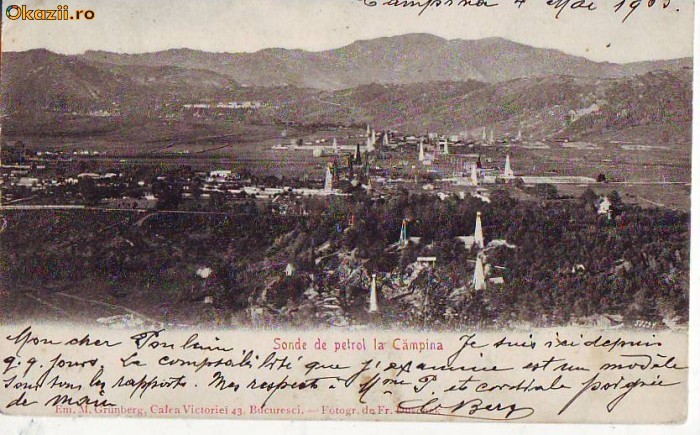 Okazii.ro
Câmpina 4 Mai 1903.
Sonde de petrol la Câmpina
Mon cher Je suis ici depuis
qq. jours. La comptabilité que j'examine est un modèle
sous tous les rapports. Mes respects à Mme P. et cordiale poignée
de main
Em. M. Grünberg, Calea Victoriei 43. Bucuresci. — Fotogr. de Fr. Duschek.